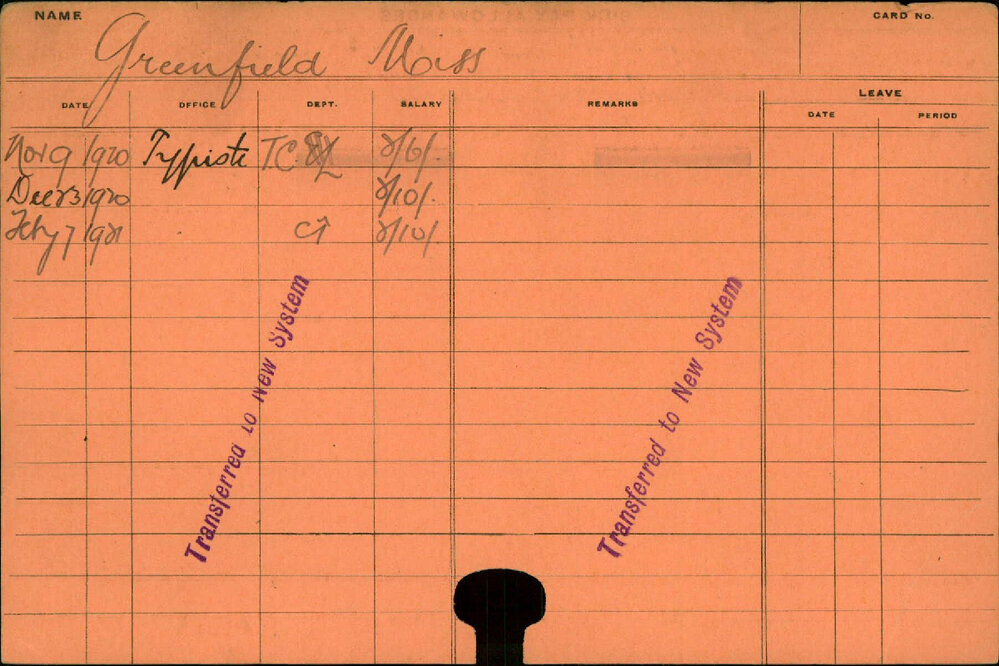 NAME CARD No.
Greenfield Miss
DATE OFFICE DEPT. SALARY REMARKS LEAVE
DATE PERIOD
Nov 9 1920 Typiste TC 2/6/.
Dec 23 1920 2/10/.
Feby 7 1921 2/10/.
Transferred to New System
Transferred to New System